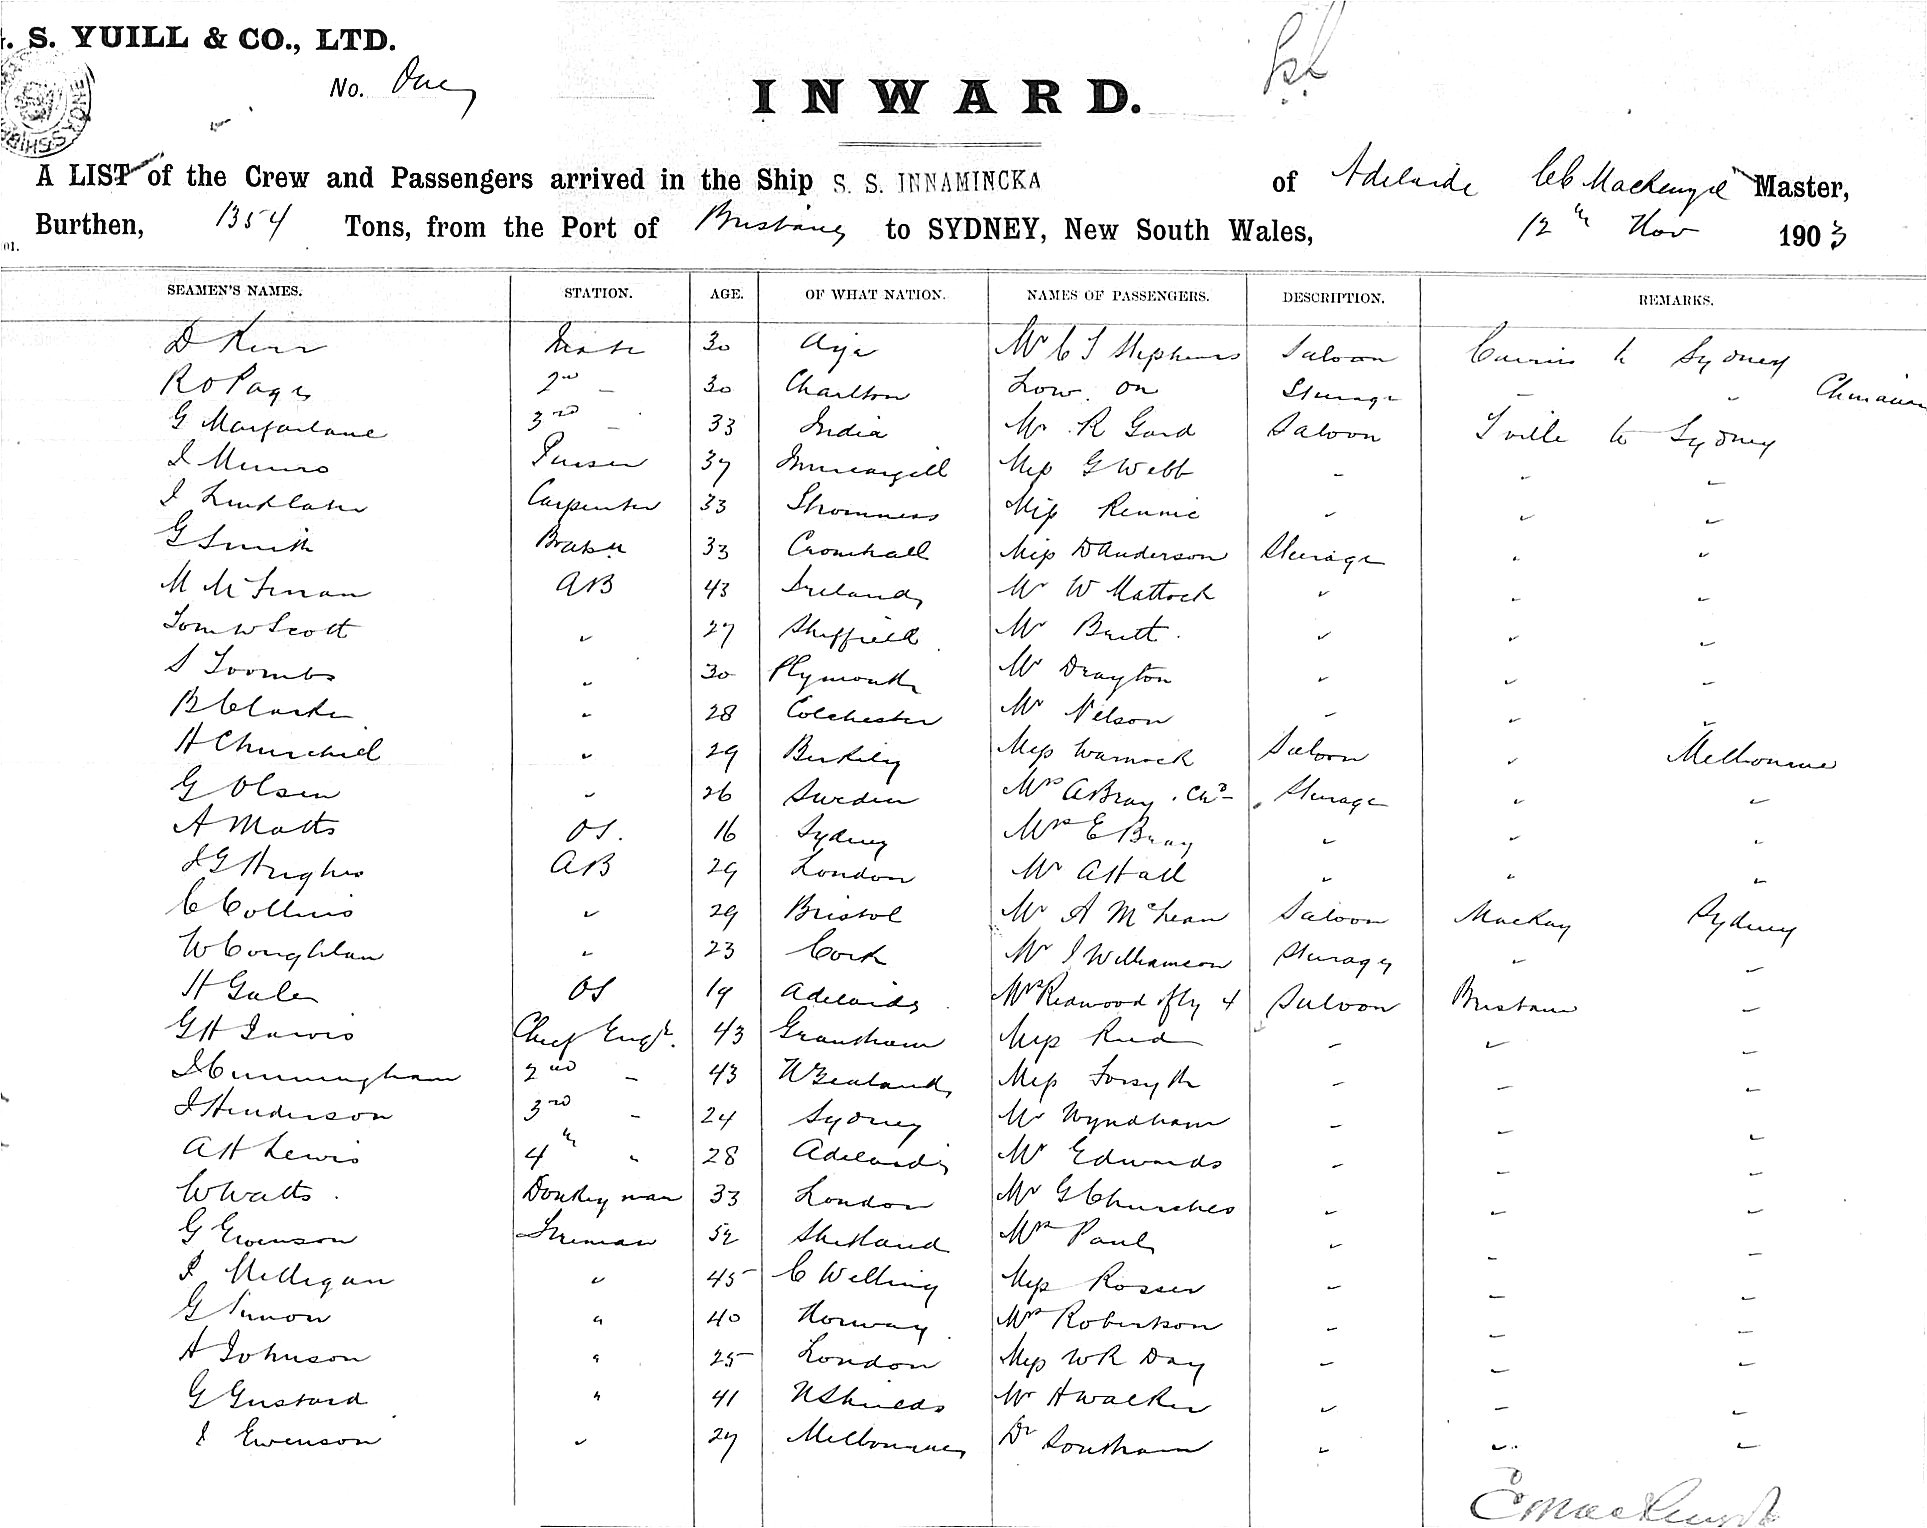 . S. YUILL & CO., LTD.
No. One
INWARD.
A LIST of the Crew and Passengers arrived in the Ship S. S. INNAMINCKA of Adelaide CC Mackenzie Master,
Burthen, 1354 Tons, from the Port of Brisbane to SYDNEY, New South Wales, 12th Nov 1903
01.
SEAMEN'S NAMES. STATION. AGE. OF WHAT NATION. NAMES OF PASSENGERS. DESCRIPTION. REMARKS.
D Kerr Mate 30 Mr C S Stephens Saloon Cairns to Sydney
R O Page 2nd 30 Charlton Low On Steerage " "
G Macfarlane 3rd 33 India Mr R Gard Saloon Tville to Sydney
J Munro Purser 37 Invercargill Miss G Webb " " "
J Linklater Carpenter 33 Stromness Miss Rennie " " "
G Smith 33 Cromhall Miss D Anderson Steerage " "
M McTernan AB 43 Ireland Mr W Mattock " " "
Tom W Scott " 27 Sheffield Mr Britt " " "
S Toombs " 30 Plymouth Mr Drayton " " "
B Clarke " 28 Colchester Mr Nelson " " "
H Churchill " 29 Miss Warnock Saloon " Melbourne
G Olsen " 26 Sweden Mrs A Bray Chd Steerage " "
A Matts OS. 16 Sydney Mrs E Bray " " "
J G Hughes AB 29 London Mr A Hall " " "
C Collins " 29 Bristol Mr A McLean Saloon Mackay Sydney
W Coughlan " 23 Cork Mr J Williamson Steerage " "
H Gale OS 19 Adelaide Mrs Redwood & fly 4 Saloon Brisbane "
G H Jarvis Chief Engr. 43 Grantham Miss Reid " " "
J Cunningham 2nd " 43 N Zealand Miss Forsyth " " "
J Henderson 3rd " 24 Sydney Mr Wyndham " " "
A H Lewis 4th " 28 Adelaide Mr Edwards " " "
W Watts Donkeyman 33 London Mr G Churches " " "
G Evenson Fireman 52 Shetland Mrs Paul " " "
J Milligan " 45 Miss Rosser " " "
G Simon " 40 Norway Mrs Robertson " " "
A Johnson " 25 London Miss W R Day " " "
G Gustard " 41 N Shields Mr H Walker " " "
J Evenson " 27 Melbourne Dr Sontham " " "
C Mackenzie